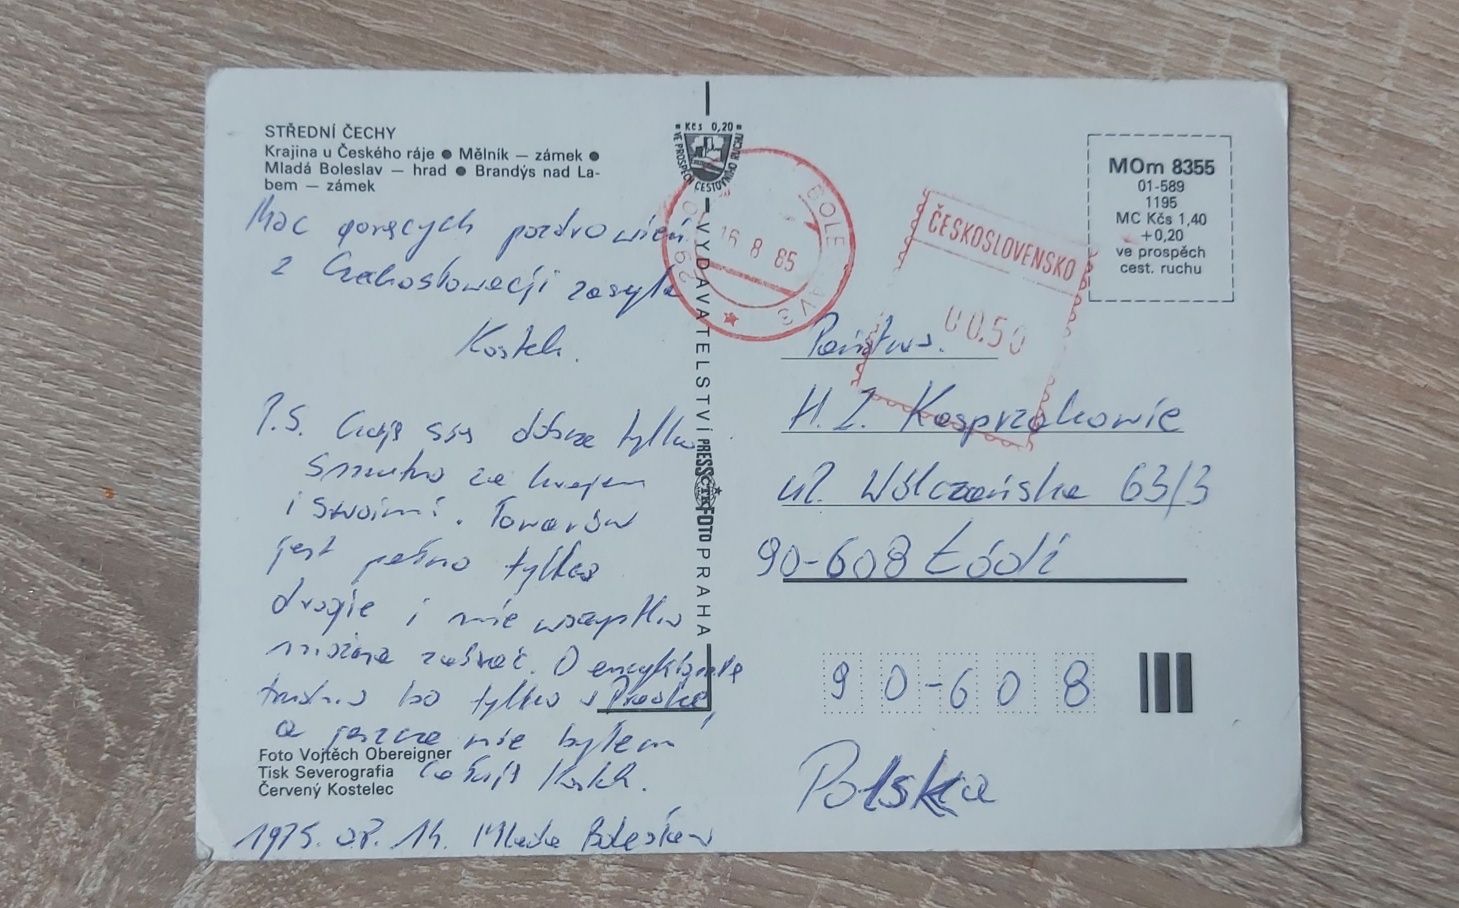 STŘEDNÍ ČECHY
Krajina u Českého ráje ● Mělník — zámek ●
Mladá Boleslav — hrad ● Brandýs nad La-
bem — zámek
Moc gorących pozdrowień
z Czechosłowacji zasyła
P.S. Czuję się dobrze tylko
smutno za krajem
i swoimi. Towarów
jest pełno tylko
drogie i nie wszystko
można zabrać. O encyklopedię
trudno bo tylko w Pradze,
a jeszcze nie byłem
Całuję
Foto Vojtěch Obereigner
Tisk Severografia
Červený Kostelec
08. 14. Mlada Boleslav
Kčs 0,20
VE PROSPĚCH CESTOVNÍHO RUCHU
VYDAVATELSTVÍ PRESSFOTO PRAHA
ČTK
BOLESLAV 3
16 8 85
ČESKOSLOVENSKO
00.50
MOm 8355
01-589
1195
MC Kčs 1,40
+0,20
ve prospěch
cest. ruchu
Państwo.
H. Z. Kasprzakowie
ul. Wólczańska 63/3
90-608 Łódź
90-608
Polska